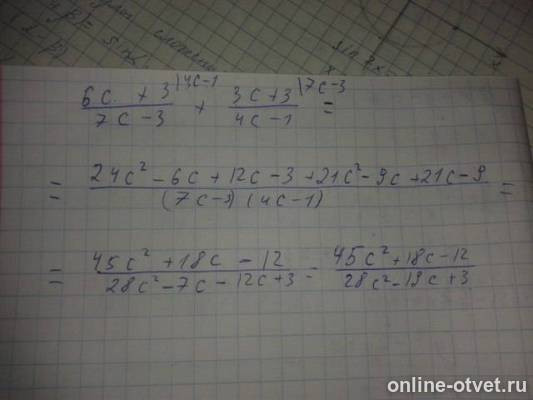 (6c + 3)/(7c - 3) |4c-1 + (3c + 3)/(4c - 1) |7c-3 =
= (24c² - 6c + 12c - 3 + 21c² - 9c + 21c - 9)/((7c-3)(4c-1)) =
= (45c² + 18c - 12)/(28c² - 7c - 12c + 3) = (45c² + 18c - 12)/(28c² - 19c + 3)
online-otvet.ru